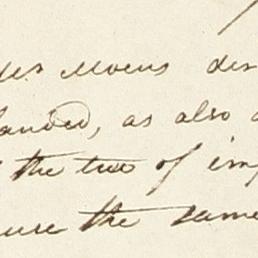 des Moens des
landed, as also
the true of imp
use the same